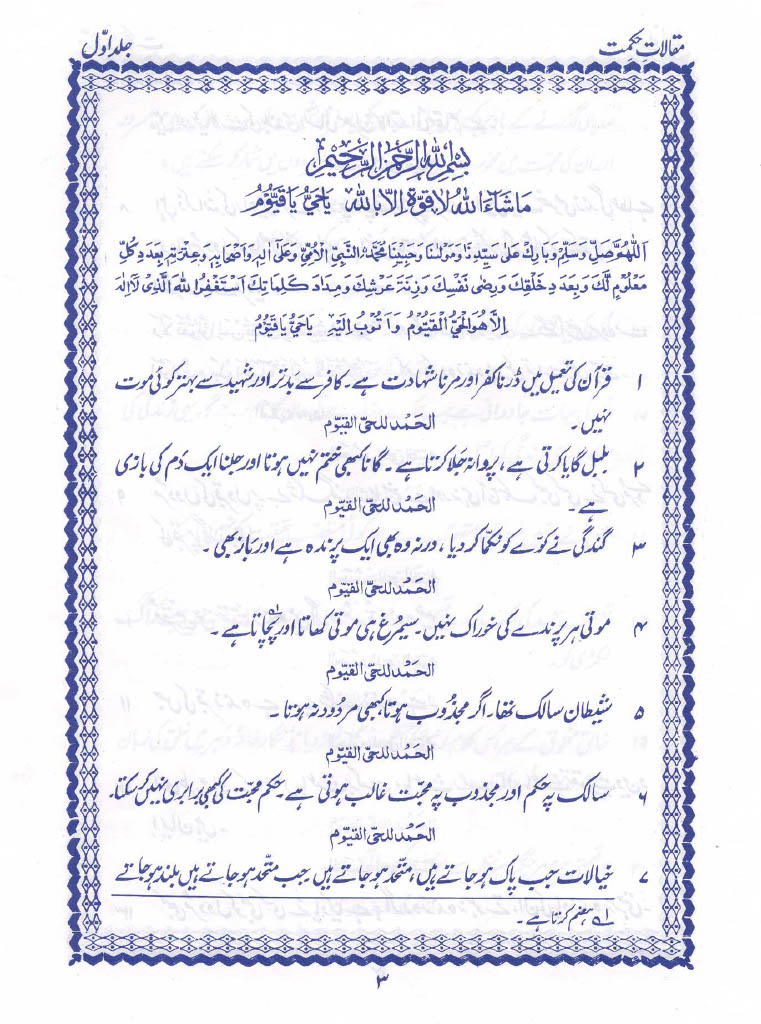 مقالاتِ حکمت
جلد اوّل
بِسْمِ اللّٰهِ الرَّحْمٰنِ الرَّحِيْمِ
مَاشَآءَ اللّٰهُ لَا قُوَّةَ اِلَّا بِاللّٰهِ يَاحَيُّ يَا قَيُّوْمُ
اَللّٰهُمَّ صَلِّ وَسَلِّمْ وَبَارِكْ عَلٰى سَيِّدِنَا وَمَوْلٰنَا وَحَبِيْبِنَا مُحَمَّدِنِ النَّبِيِّ الْاُمِّيِّ وَعَلٰى اٰلِهٖ وَاَصْحَابِهٖ وَعِتْرَتِهٖ بِعَدَدِ كُلِّ
مَعْلُوْمٍ لَّكَ وَبِعَدَدِ خَلْقِكَ وَرِضٰى نَفْسِكَ وَزِنَةِ عَرْشِكَ وَمِدَادِ كَلِمَاتِكَ اَسْتَغْفِرُ اللّٰهَ الَّذِىْ لَآ اِلٰهَ
اِلَّا هُوَ الْحَىُّ الْقَيُّوْمُ وَاَتُوْبُ اِلَيْهِ يَاحَيُّ يَا قَيُّوْمُ
۱ قرآن کی تعمیل میں ڈرنا کفر اور مرنا شہادت ہے۔ کافر سے بدتر اور شہید سے بہتر کوئی موت
نہیں۔
الحَمد للحىّ القيّوم
۲ بلبل گایا کرتی ہے، پروانہ جلا کرتا ہے۔ گانا کبھی ختم نہیں ہوتا اور جلنا ایک دُم کی بازی
ہے۔
الحَمد للحىّ القيّوم
۳ گندگی نے کوّے کو نکمّا کر دیا، ورنہ وہ بھی ایک پرندہ ہے اور باز بھی۔
الحَمد للحىّ القيّوم
۴ موتی ہر پرندے کی خوراک نہیں۔ سیمرغ ہی موتی کھاتا اور پچاتا ۱ ہے۔
الحَمد للحىّ القيّوم
۵ شیطان سالک تھا۔ اگر مجذوب ہوتا، کبھی مردود نہ ہوتا۔
الحَمد للحىّ القيّوم
۶ سالک پہ حکم اور مجذوب پہ محبّت غالب ہوتی ہے۔ حکم محبّت کی کبھی برابری نہیں کر سکتا۔
الحَمد للحىّ القيّوم
۷ خیالات جب پاک ہو جاتے ہیں، متّحد ہو جاتے ہیں۔ جب متّحد ہو جاتے ہیں بلند ہو جاتے
۱ ہضم کرتا ہے۔
۳